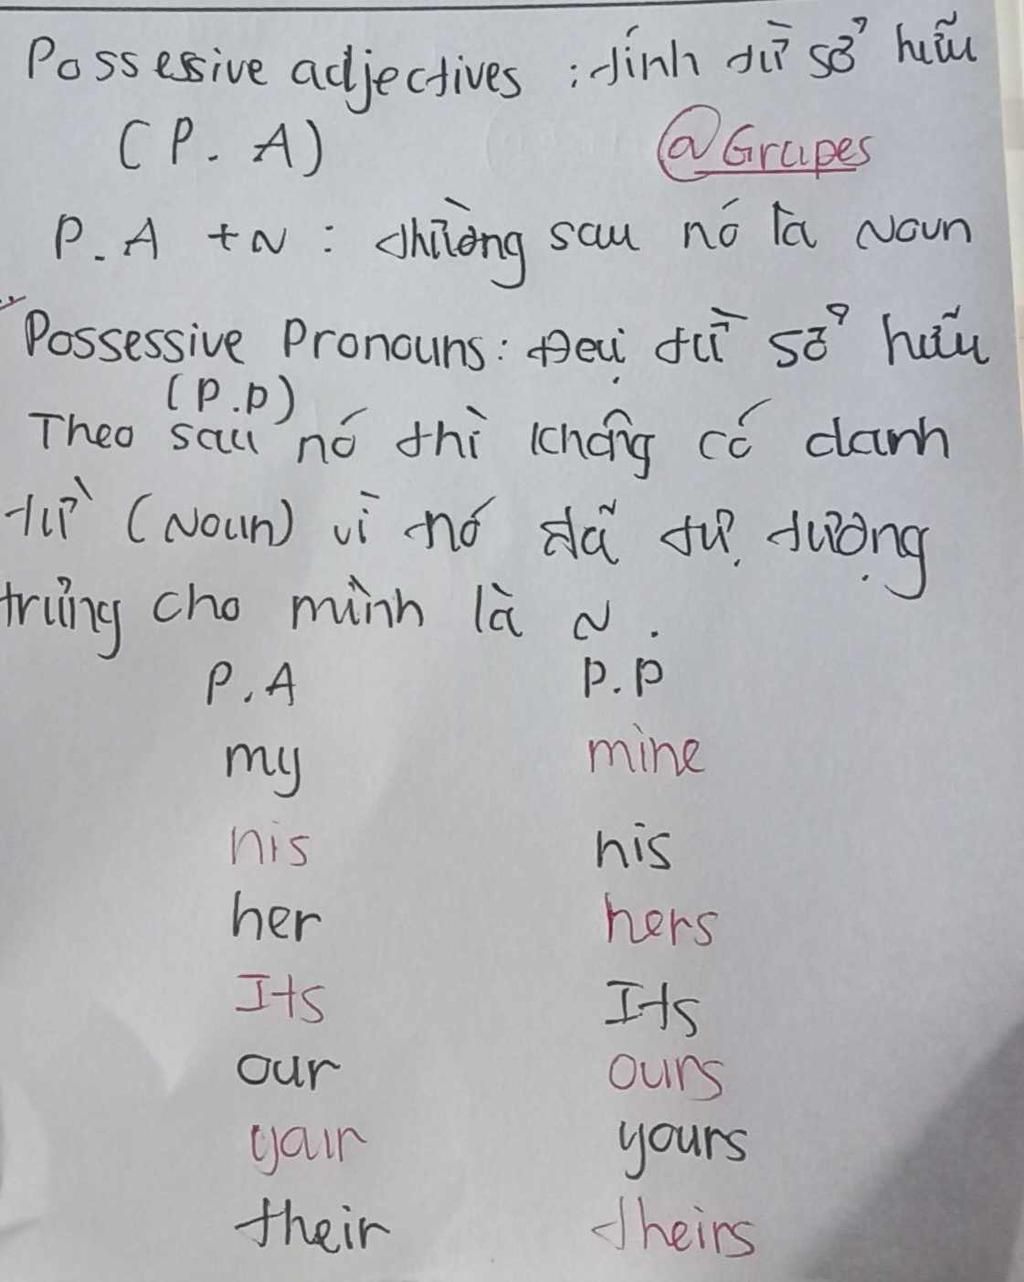 Possessive adjectives : tính từ sở hữu
(P. A) @Grapes
P. A + N : thường sau nó là Noun
Possessive Pronouns : Đại từ sở hữu
(P.P)
Theo sau nó thì không có danh
từ (Noun) vì nó đã tự tượng
trưng cho mình là N.
P.A P.P
my mine
his his
her hers
Its Its
our ours
your yours
their theirs